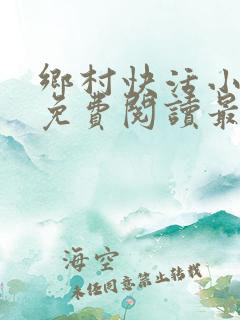 鄉村快活小
免費閱讀最
海空
未任同意禁止转载